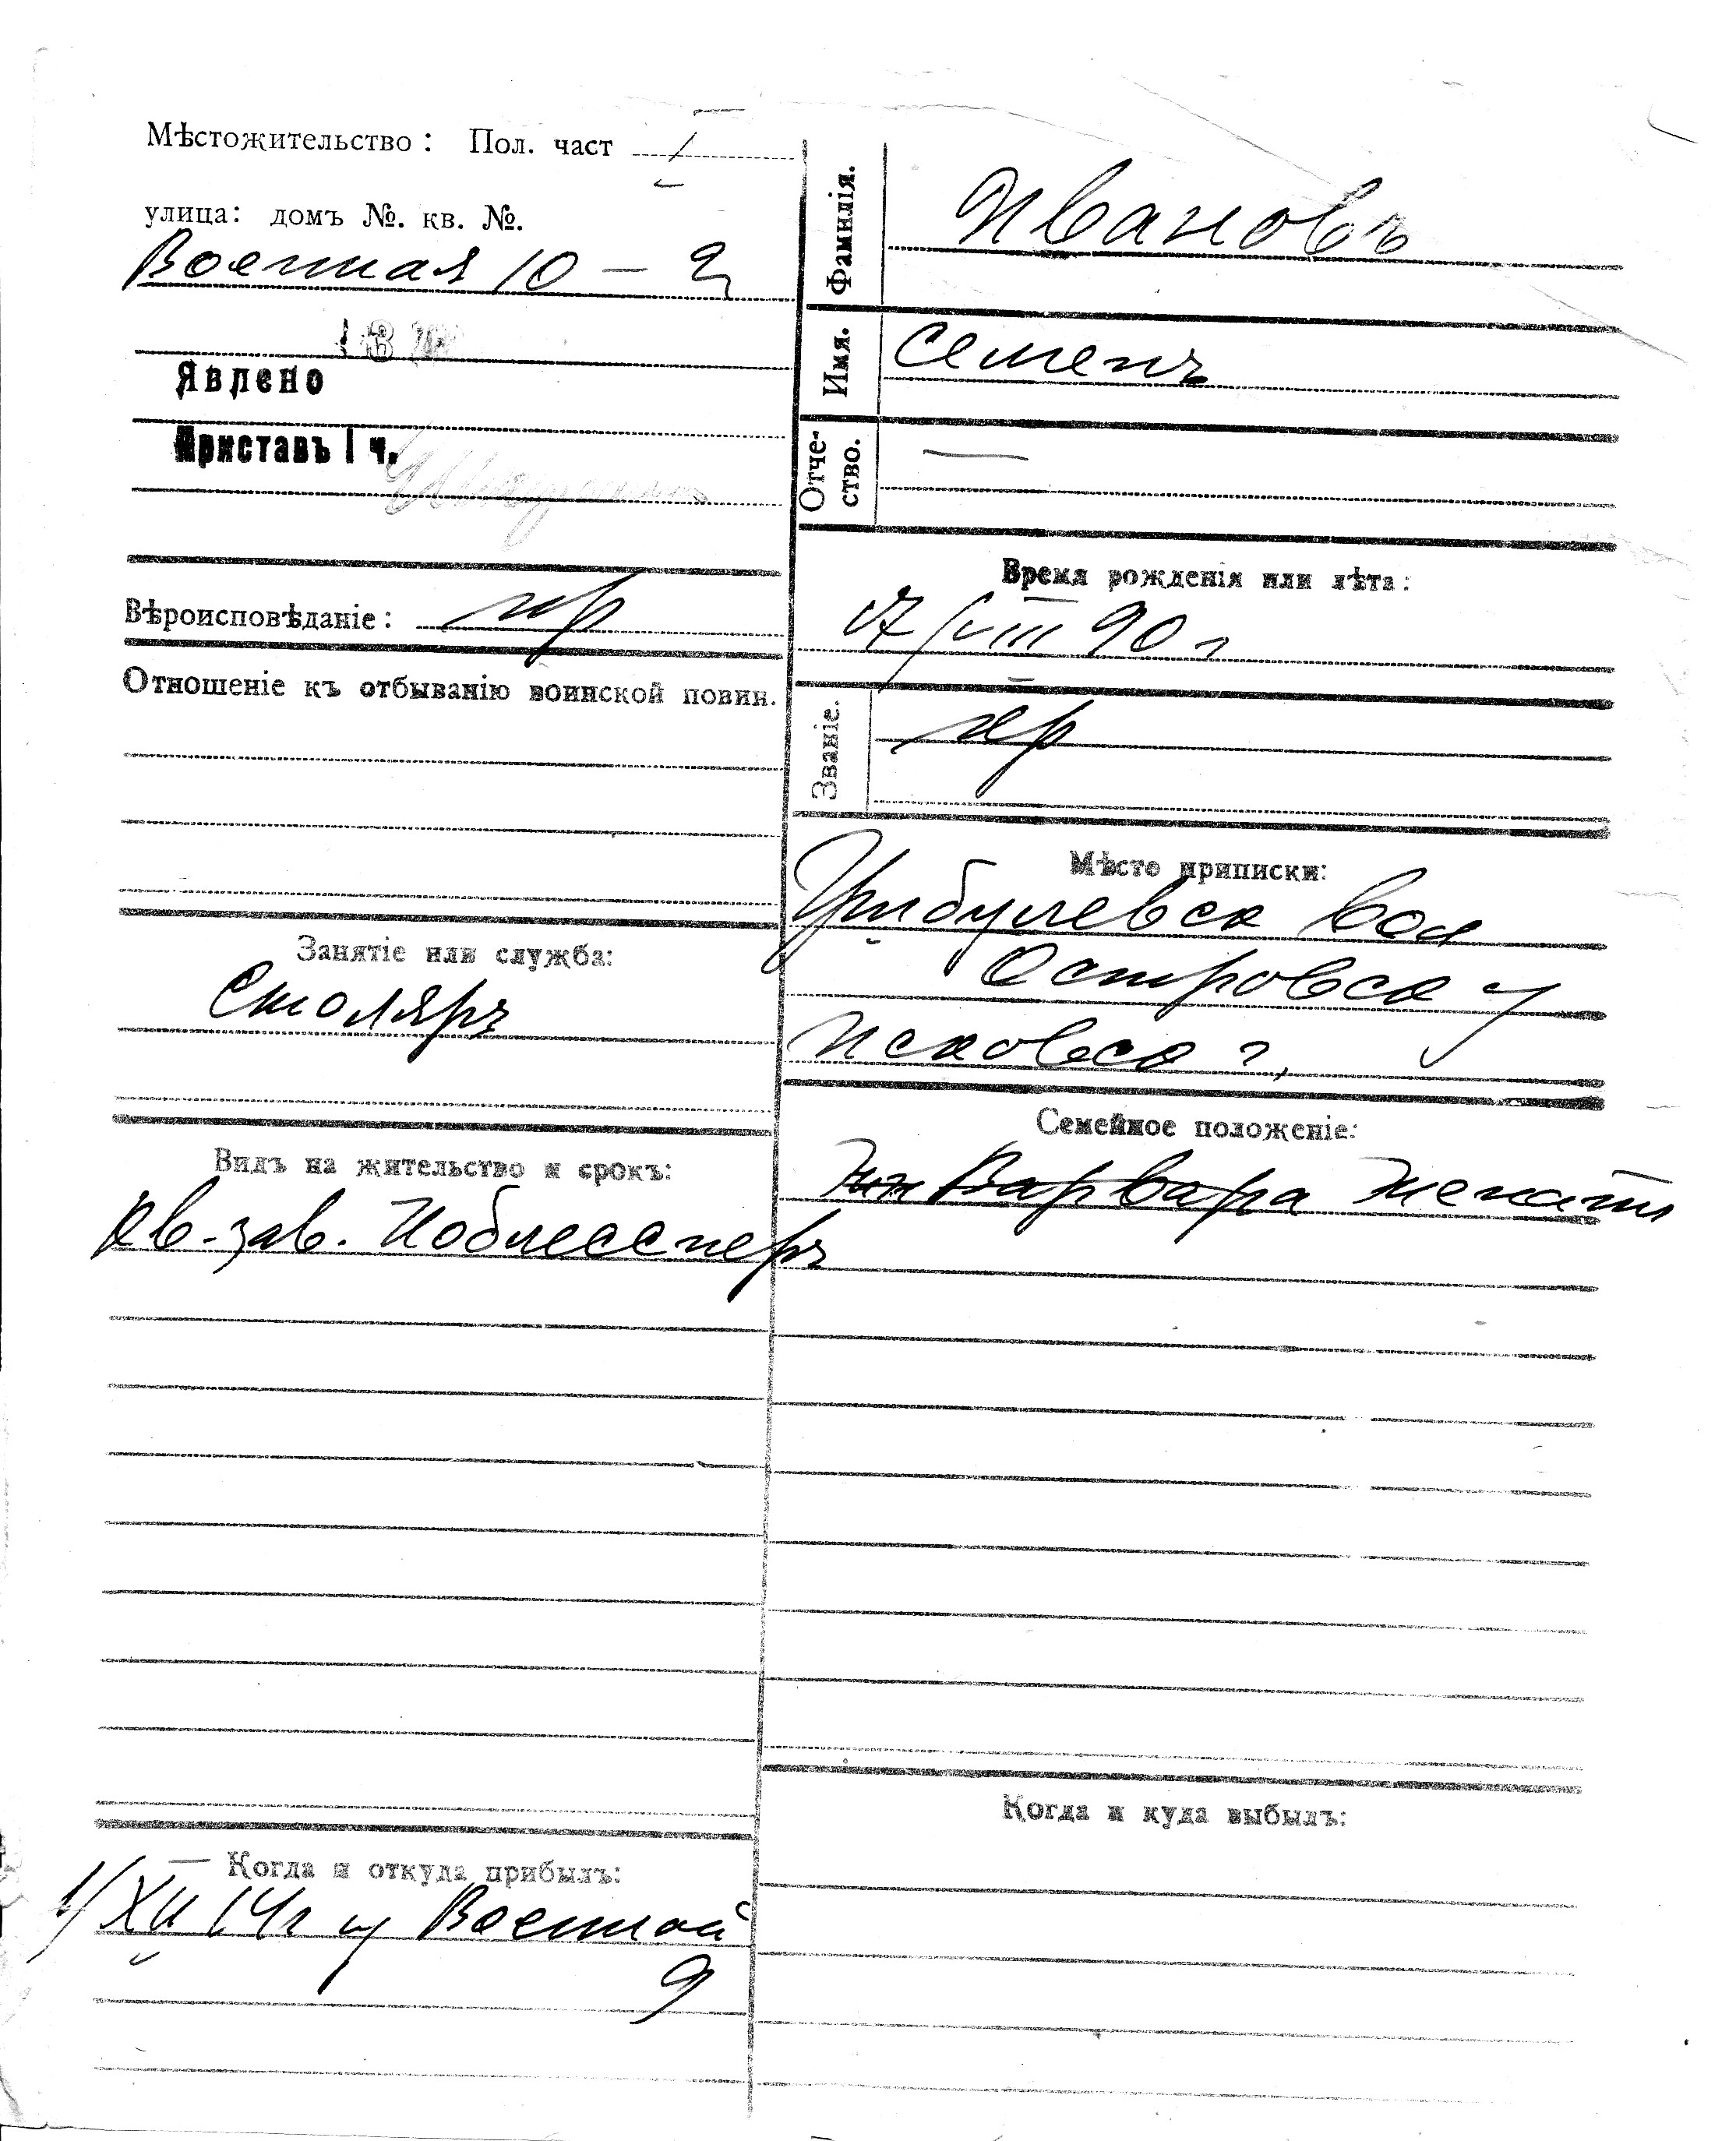 Мѣстожительство: Пол. част I
улица: домъ №. кв. №.
Военная 10 – 2
Явлено
Приставъ I ч.
Вѣроисповѣданіе: пр
Отношеніе къ отбыванію воинской повин.
Занятіе или служба:
Столяръ
Видъ на жительство и срокъ:
кв. зав. Ноблесснеръ
Когда и откуда прибылъ:
1/XII 14 г Военной
9
Фамилія.
Ивановъ
Имя.
Семенъ
Отче-
ство.
—
Время рожденія или лѣта:
VIII 90 г
Званіе.
кр
Мѣсто приписки:
вол
Островско у
Псковско г,
Семейное положеніе:
Варвара женатъ
Когда и куда выбылъ: